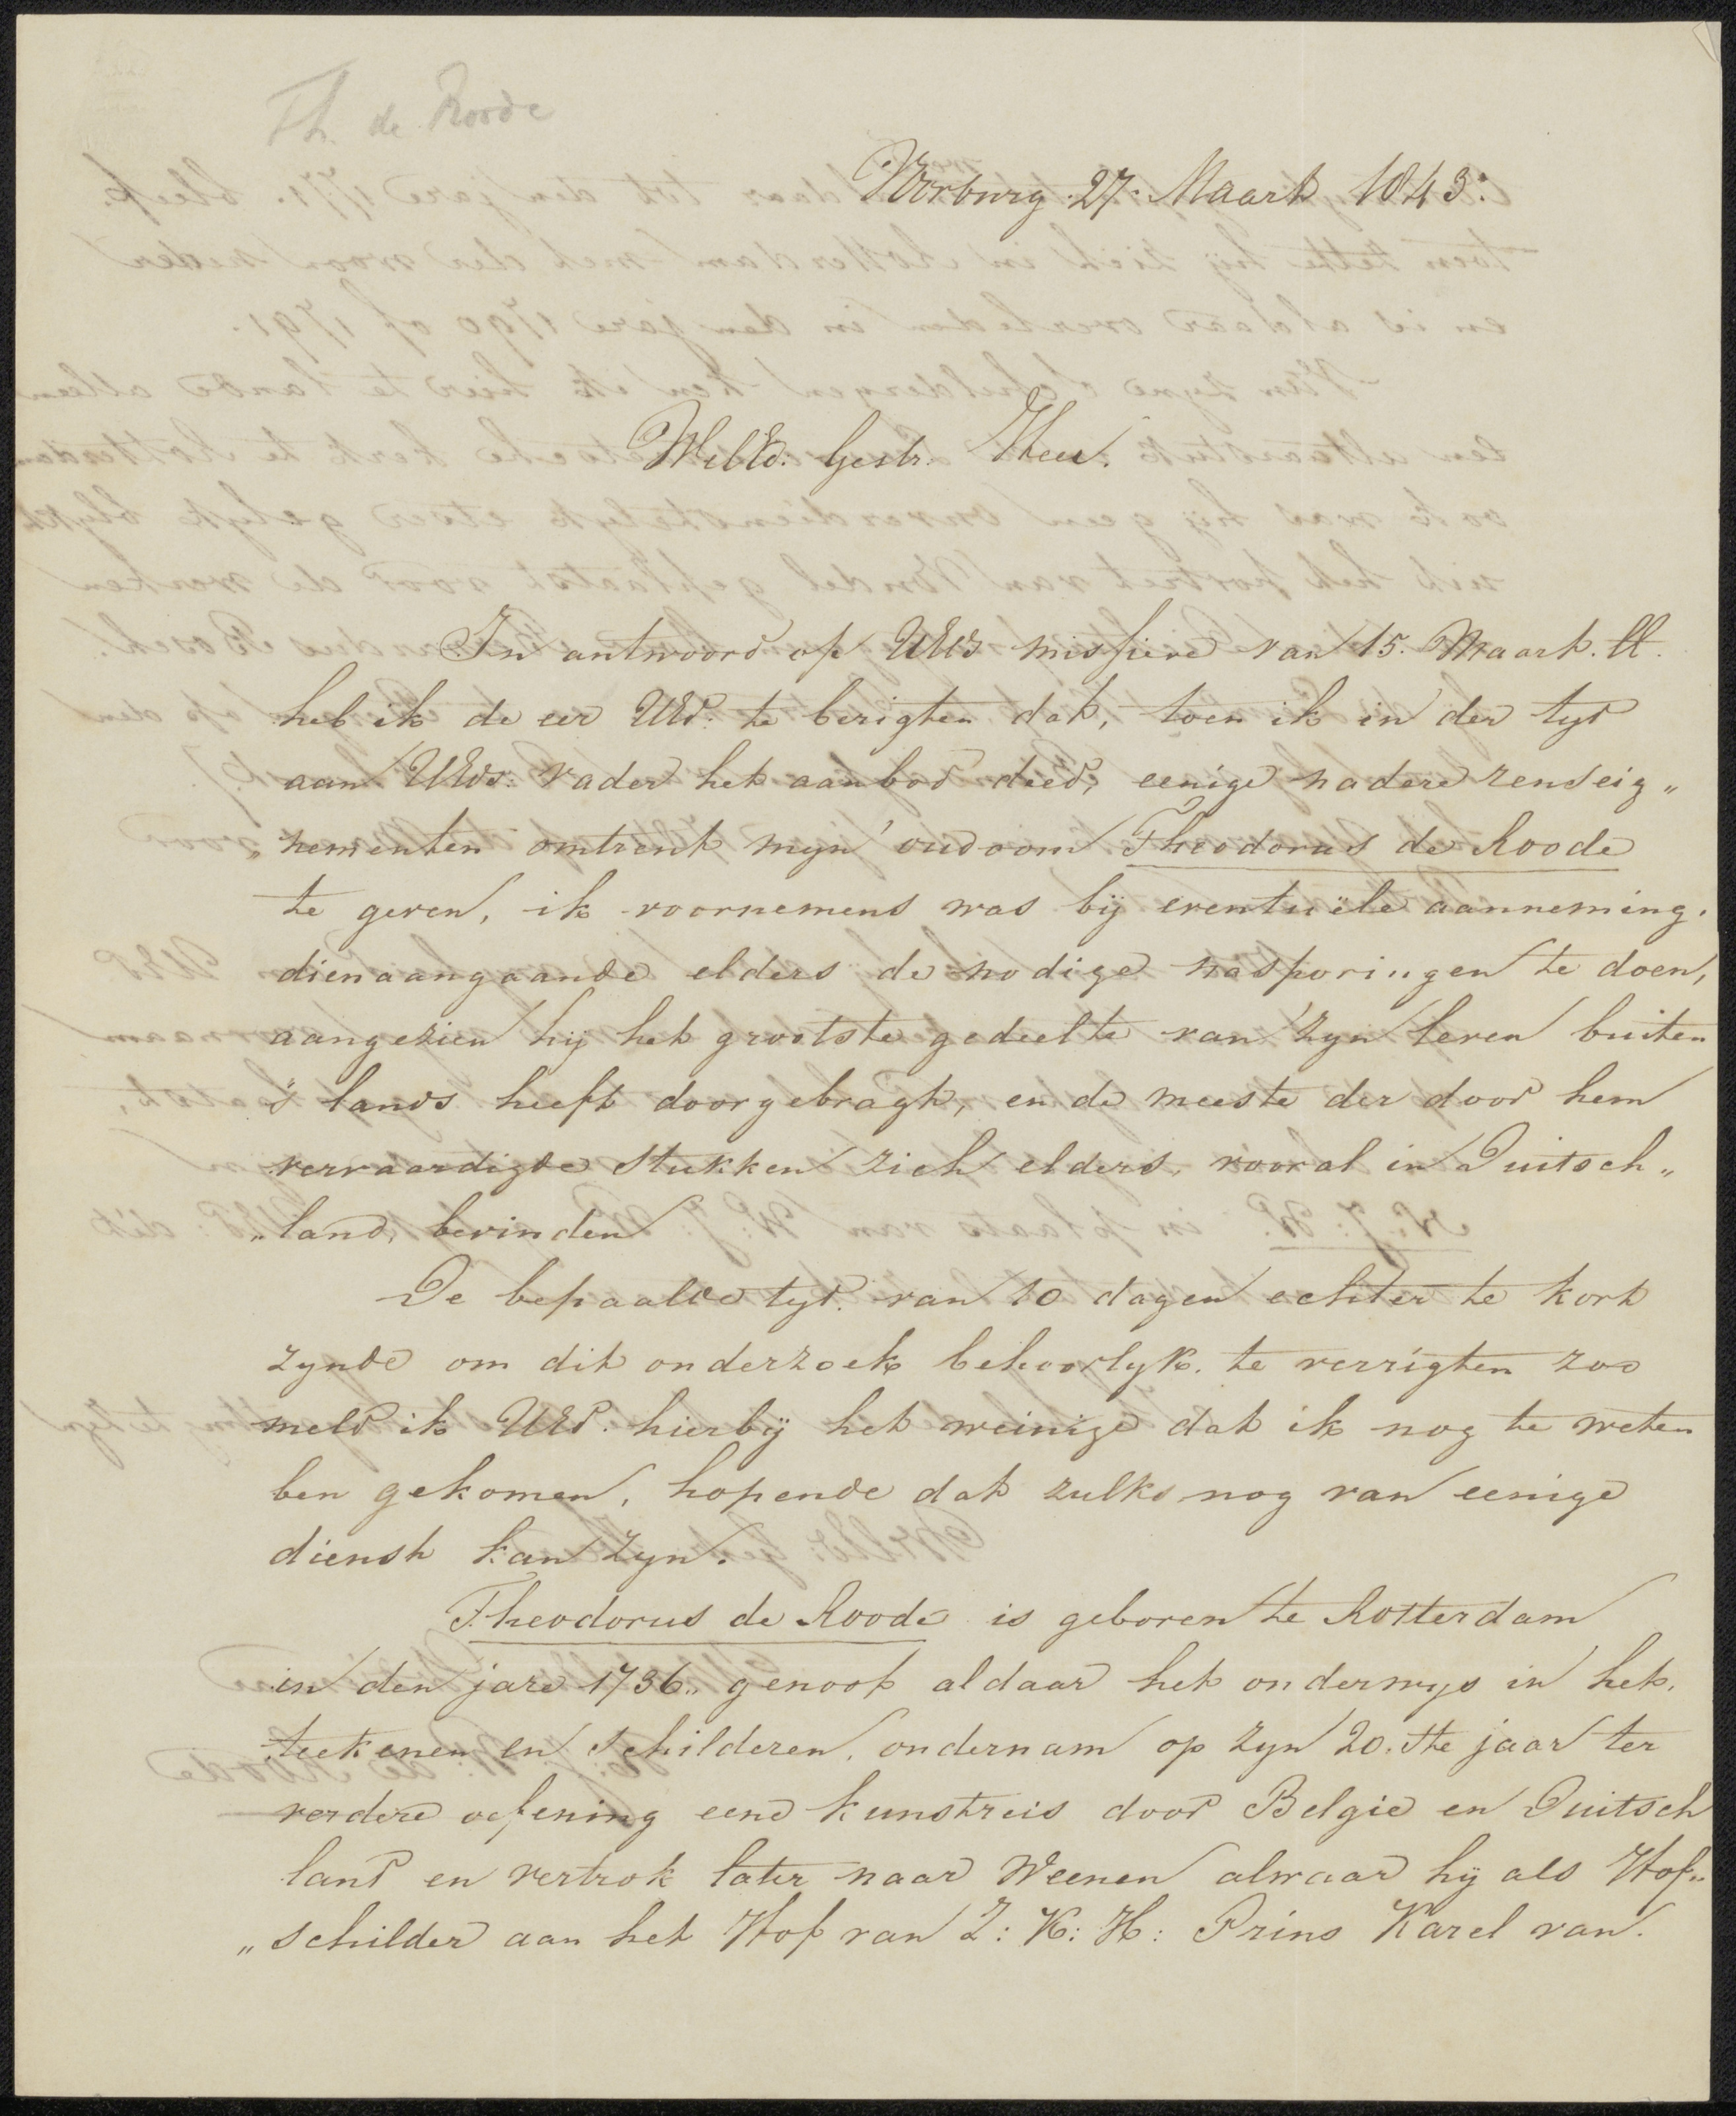 Th. de Roode
Voorburg 27 Maart 1843.
WelEd. Gestr. Heer.
In antwoord op UEds missive van 15. Maart. ll.
heb ik de eer UEd. te berigten dat, toen ik in der tyd
aan UEds. vader het aanbod deed, eenige nadere renseig„
„nementen omtrent myn' oudoom Theodorus de Roode
te geven, ik voornemens was bij eventuële aanneming.
dienaangaande elders de nodige nasporingen te doen,
aangezien hij het grootste gedeelte van zyn leven buiten
's lands heeft doorgebragt, en de meeste der door hem
vervaardigde stukken zich elders, vooral in Duitsch„
„land, bevinden
De bepaalde tyd. van 10 dagen echter te kort
zynde om dit onderzoek behoorlyk. te verrigten zoo
meld ik UEd. hierbij het weinige dat ik nog te weten
ben gekomen, hopende dat zulks nog van eenige
dienst kan zyn.
Theodorus de Roode is geboren te Rotterdam
in den jare 1736„ genoot aldaar het onderwys in het.
teekenen en schilderen, ondernam op zyn 20.ste jaar ter
verdere oefening eene kunstreis door Belgie en Duitsch
land en vertrok later naar Weenen alwaar hij als Hof„
„schilder aan het Hof van Z: K: H: Prins Karel van.